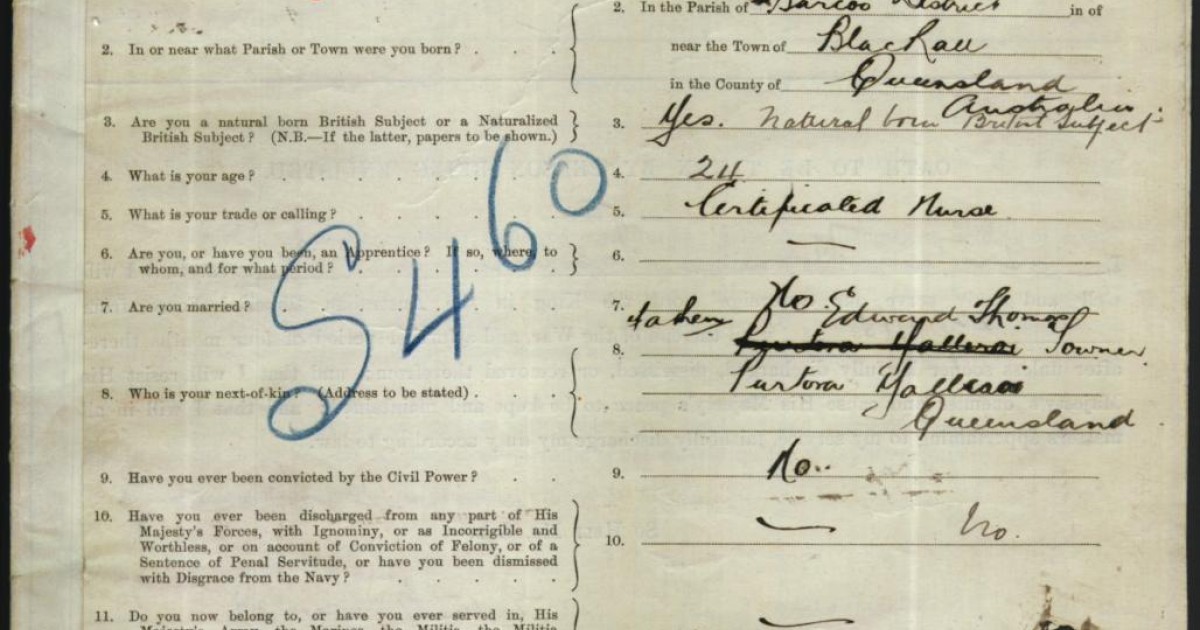 2. In the Parish of Barcoo District in or
2. In or near what Parish or Town were you born? . . . near the Town of Blackall
in the County of Queensland
Australia
3. Are you a natural born British Subject or a Naturalized
British Subject? (N.B.—If the latter, papers to be shown.)
3. Yes. Natural born British Subject
4. What is your age? . . . . . . . 4. 24
5. What is your trade or calling? . . . . . 5. Certificated Nurse
6. Are you, or have you been, an Apprentice? If so, where, to
whom, and for what period? . . . . . 6. —
7. Are you married? . . . . . . . 7. No.
S4460
8. Who is your next-of-kin? (Address to be stated) . 8. Father Edward Thomas
Towner
Queensland
9. Have you ever been convicted by the Civil Power? . . 9. No.
10. Have you ever been discharged from any part of His
Majesty's Forces, with Ignominy, or as Incorrigible and
Worthless, or on account of Conviction of Felony, or of a
Sentence of Penal Servitude, or have you been dismissed
with Disgrace from the Navy? . . . . 10. — No.
11. Do you now belong to, or have you ever served in, His
Majesty's Army, the Marines, the Militia, the Militia